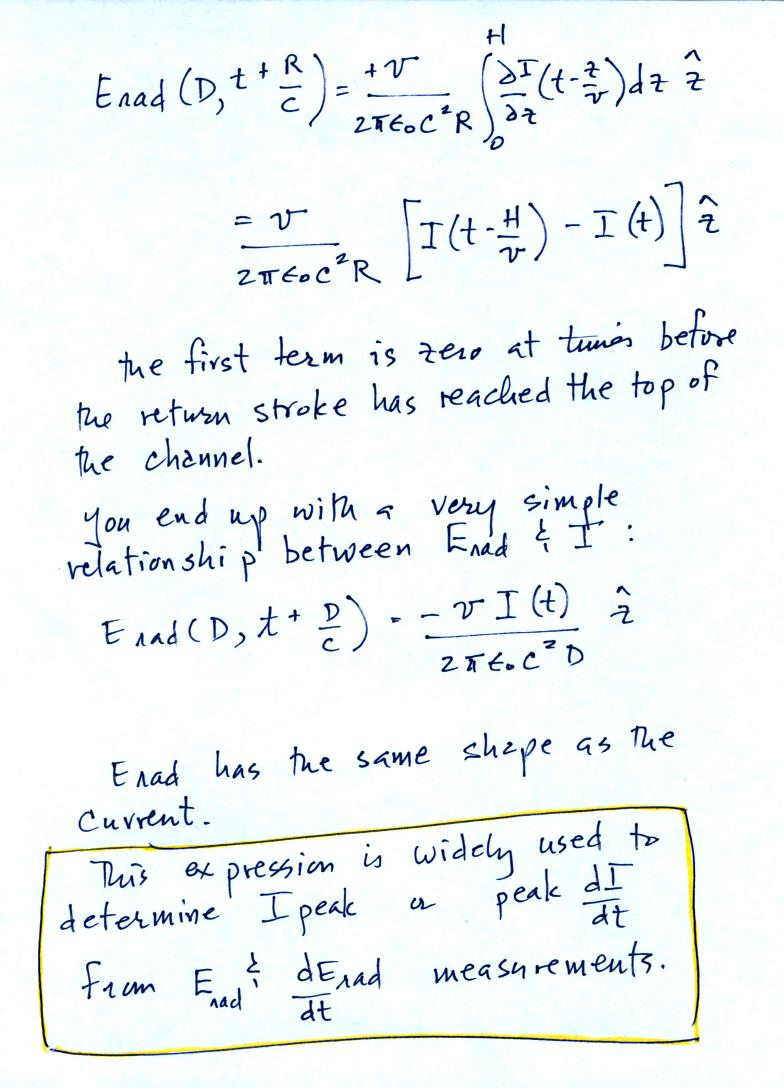 Erad (D, t + R/C) = +v/2πε₀C²R ∫₀ᴴ ∂I/∂z (t - z/v) dz ẑ
= v/2πε₀C²R [I(t - H/v) - I(t)] ẑ
the first term is zero at times before
the return stroke has reached the top of
the channel.
you end up with a very simple
relationship between Erad & I :
Erad (D, t + D/C) = - v I(t)/2πε₀C²D ẑ
Erad has the same shape as the
current.
This expression is widely used to
determine I peak or peak dI/dt
from Erad & dErad/dt measurements.